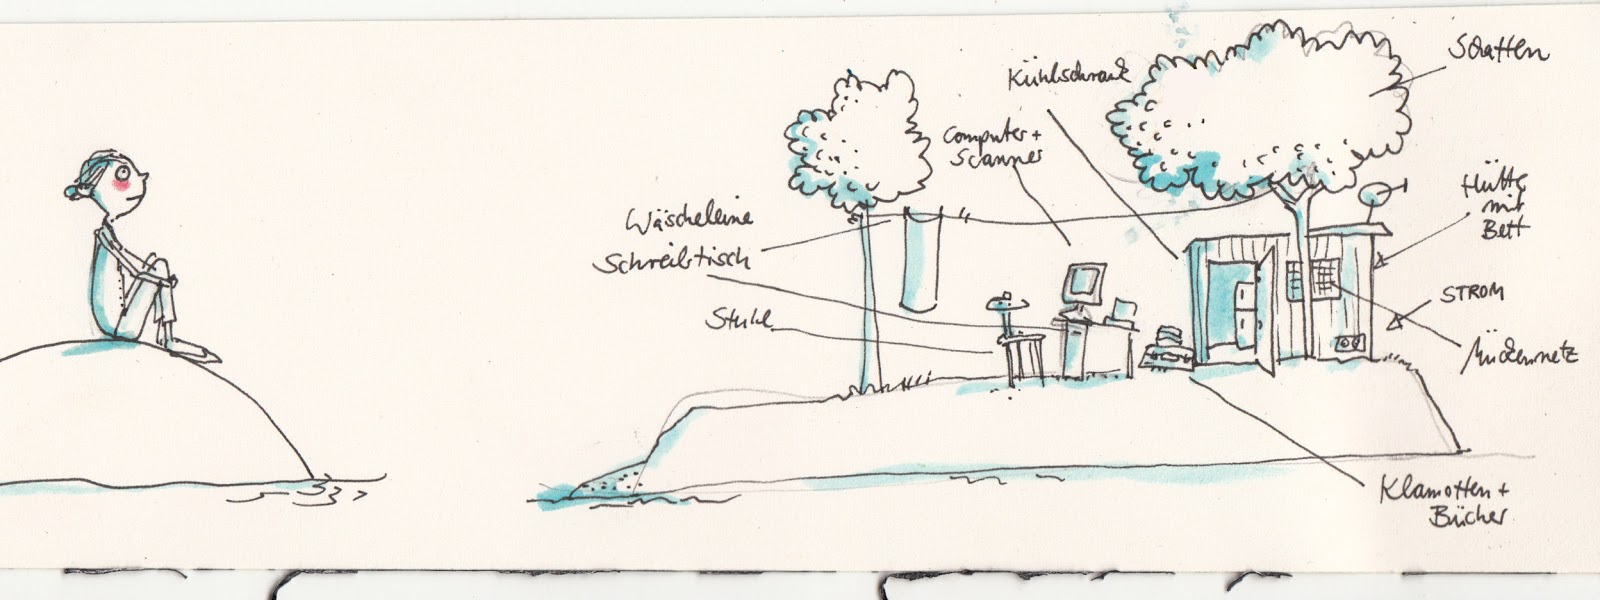 Wäscheleine
Schreibtisch
Stuhl
Computer +
Scanner
Kühlschrank
Schatten
Hütte
mit
Bett
STROM
Mückennetz
Klamotten +
Bücher